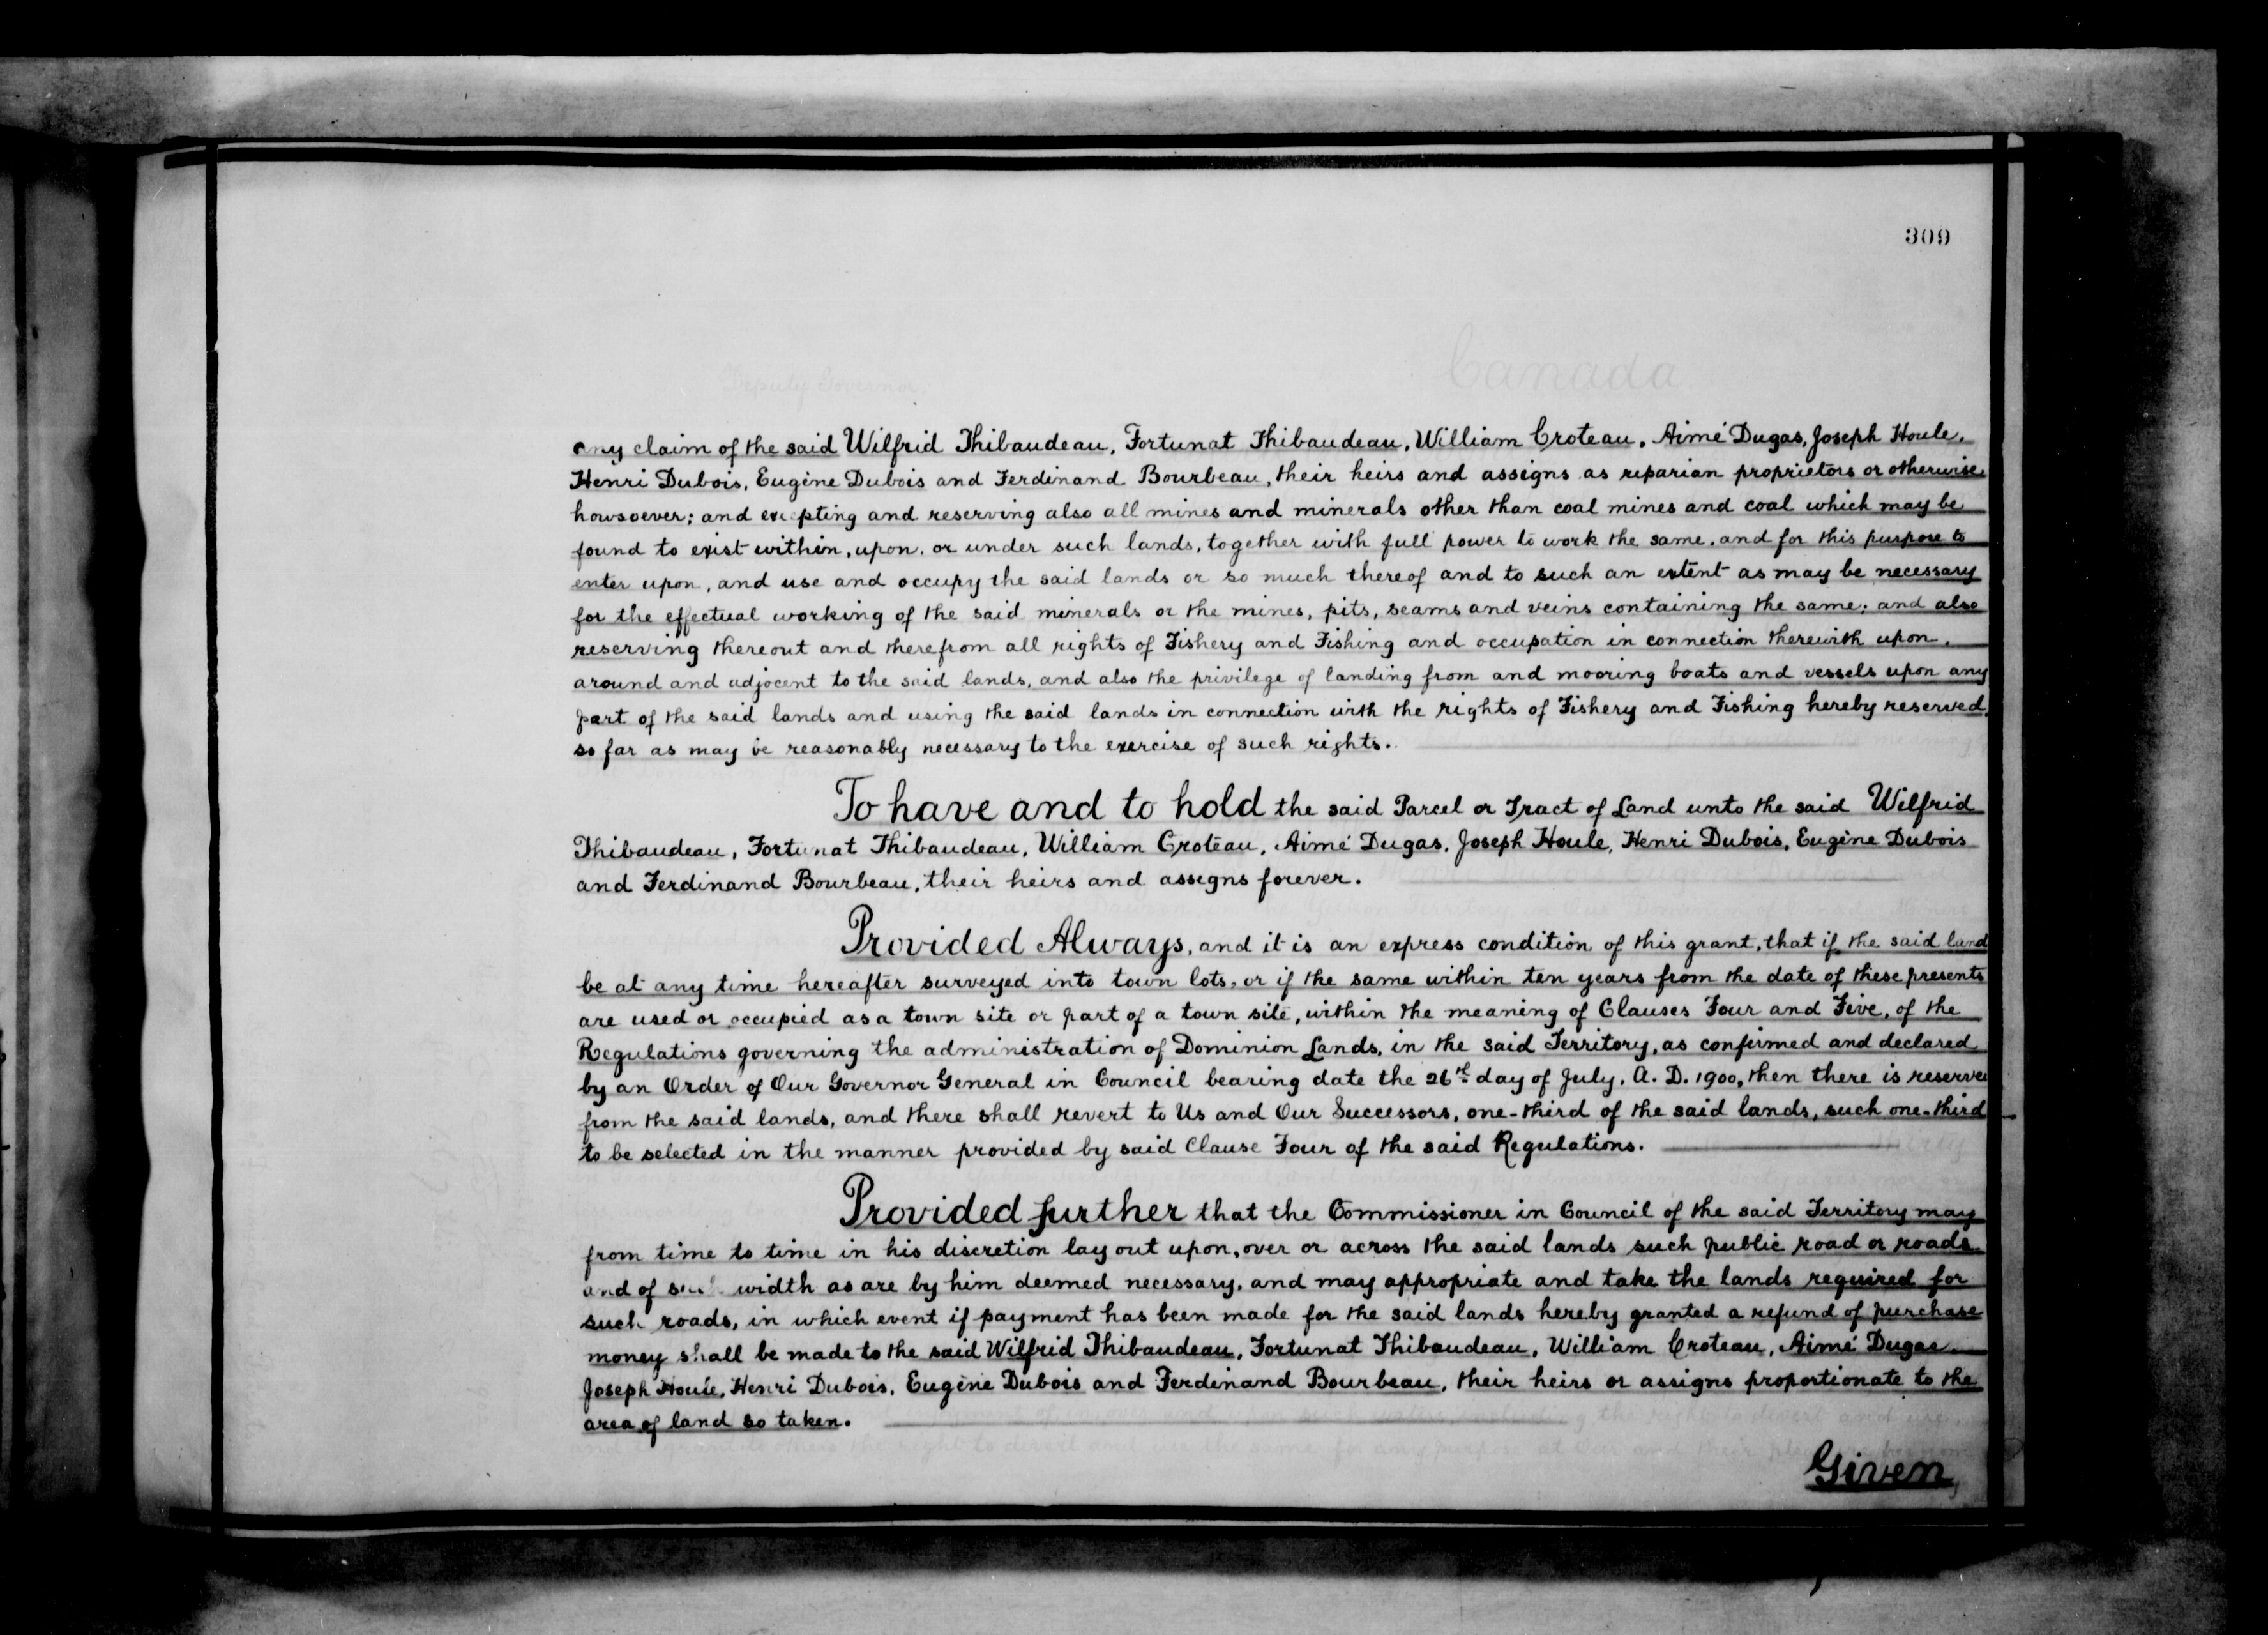 309
any claim of the said Wilfrid Thibaudeau, Fortunat Thibaudeau, William Croteau, Aimé Dugas, Joseph Houle,
Henri Dubois, Eugène Dubois and Ferdinand Bourbeau, their heirs and assigns as riparian proprietors or otherwise
howsoever; and excepting and reserving also all mines and minerals other than coal mines and coal which may be
found to exist within, upon, or under such lands, together with full power to work the same, and for this purpose to
enter upon, and use and occupy the said lands or so much thereof and to such an extent as may be necessary
for the effectual working of the said minerals or the mines, pits, seams and veins containing the same; and also
reserving thereout and therefrom all rights of Fishery and Fishing and occupation in connection therewith upon,
around and adjacent to the said lands, and also the privilege of landing from and mooring boats and vessels upon any
part of the said lands and using the said lands in connection with the rights of Fishery and Fishing hereby reserved,
so far as may be reasonably necessary to the exercise of such rights.
To have and to hold the said Parcel or Tract of Land unto the said Wilfrid
Thibaudeau, Fortunat Thibaudeau, William Croteau, Aimé Dugas, Joseph Houle, Henri Dubois, Eugène Dubois
and Ferdinand Bourbeau, their heirs and assigns forever.
Provided Always, and it is an express condition of this grant, that if the said land
be at any time hereafter surveyed into town lots, or if the same within ten years from the date of these presents
are used or occupied as a town site or part of a town site, within the meaning of Clauses Four and Five, of the
Regulations governing the administration of Dominion Lands, in the said Territory, as confirmed and declared
by an Order of Our Governor General in Council bearing date the 26th day of July, A. D. 1900, then there is reserve
from the said lands, and there shall revert to Us and Our Successors, one-third of the said lands, such one-third
to be selected in the manner provided by said Clause Four of the said Regulations.
Provided further that the Commissioner in Council of the said Territory may
from time to time in his discretion lay out upon, over or across the said lands such public road or roads
and of such width as are by him deemed necessary, and may appropriate and take the lands required for
such roads, in which event if payment has been made for the said lands hereby granted a refund of purchase
money shall be made to the said Wilfrid Thibaudeau, Fortunat Thibaudeau, William Croteau, Aimé Dugas
Joseph Houle, Henri Dubois, Eugène Dubois and Ferdinand Bourbeau, their heirs or assigns proportionate to the
area of land so taken.
Given,